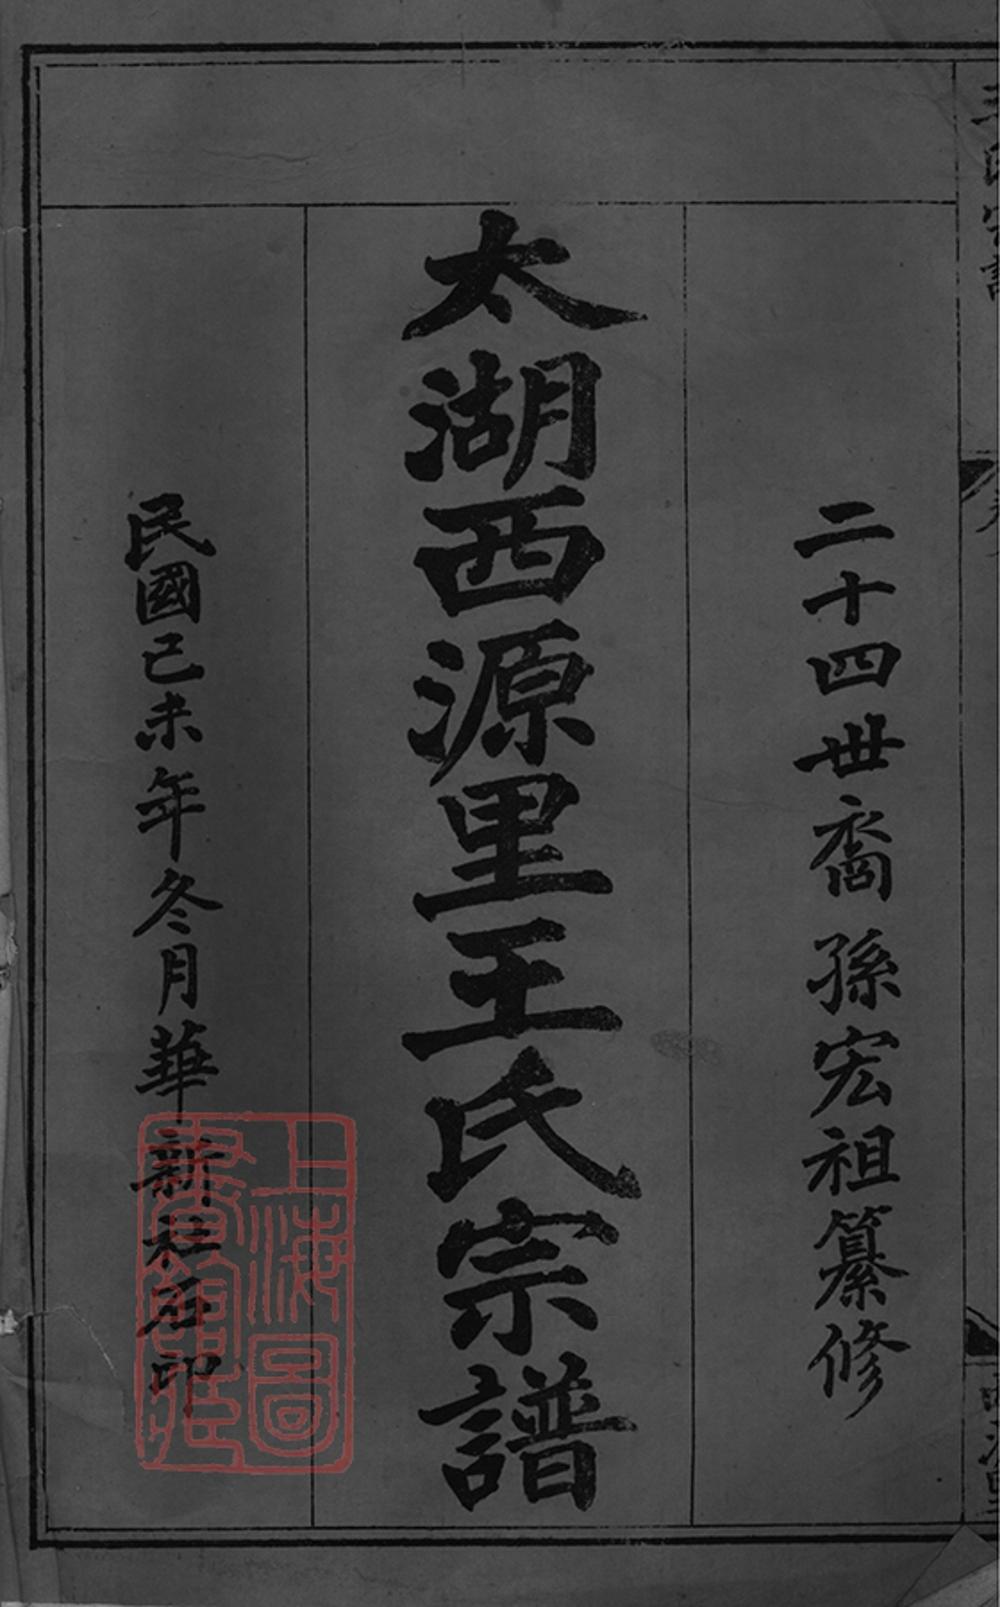 二十四世裔孫宏祖纂修
太湖西源里王氏宗譜
民國己未年冬月華新社石印
上海圖書館藏
王氏宗譜